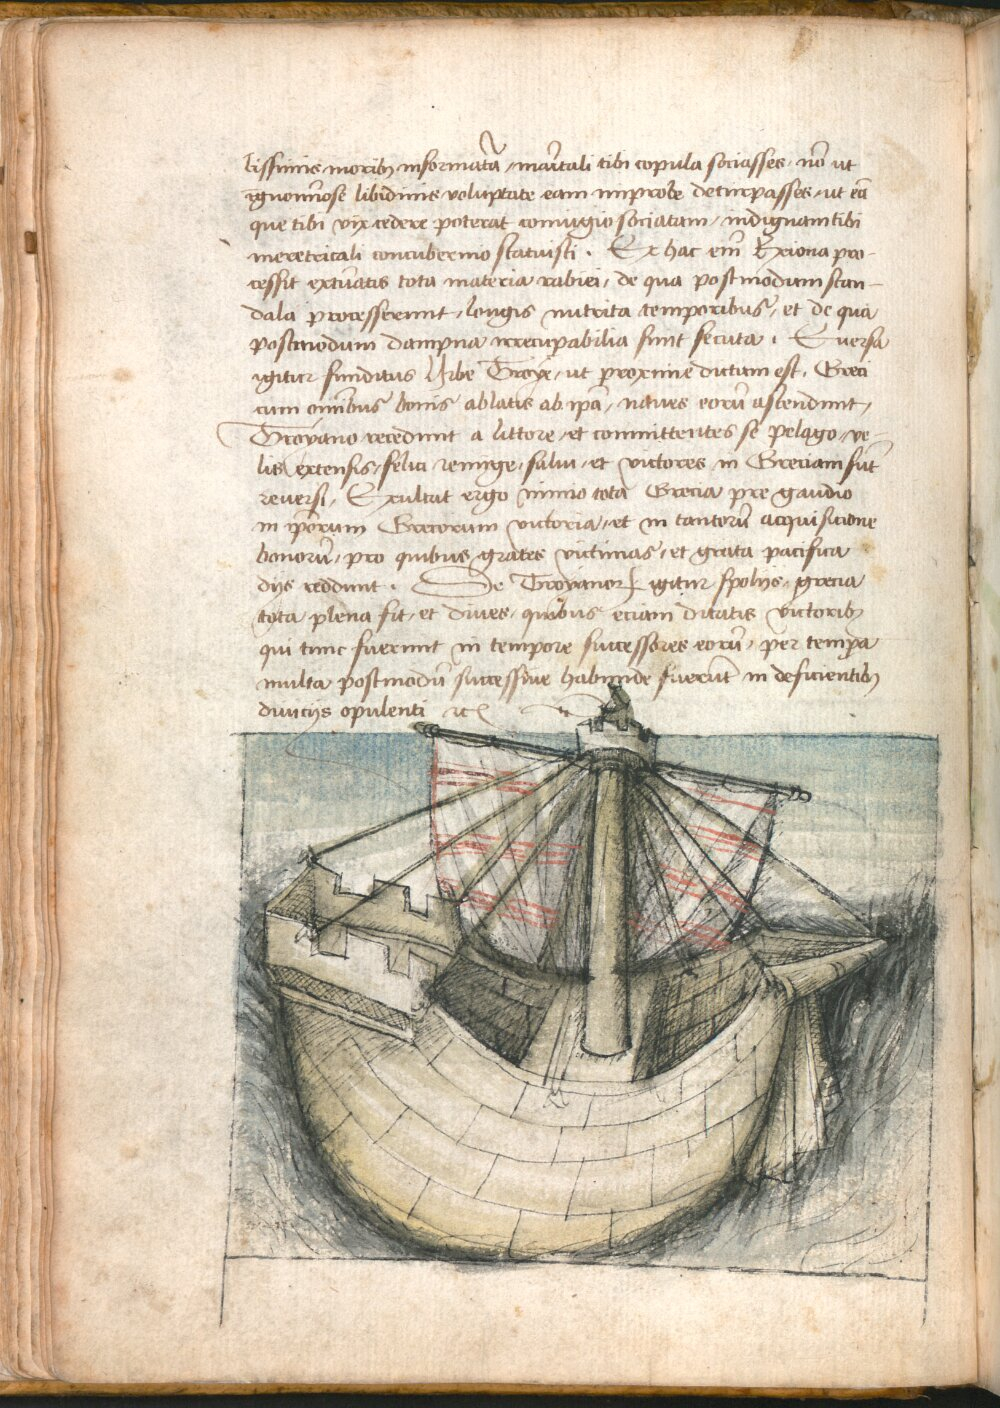 tissimis moribꝫ informatā / mārtali tibi copula sociasses, nō ut
ignomīose libidinis voluptate eam improbe deturpasses, ut eā
que tibi vix cedere poterat coniugio sociatam / indignam tibi
meretricali concubernio statuisti. Ex hac enī Exiona pro-
cessit extuatis tota materia rabiei, de qua postmodum scan-
dala processerunt, longis nutrita temporibus, et de qua
postmodum dampna irrecupabilia sunt secuta. Euersa
igitur funditus Urbe Troye, ut proxime dictum est, Greci
cum omībus bonis ablatis ab ipā, naues eorū ascendunt,
Troyano recedunt a littore, et committentes se pelago, ve-
lis extensis, felici remige, salui, et victores in Greciam sūt
reuersi, Exultat ergo nimio tota Grecia pre gaudio
in ipōrum Grecorum victoria, et in tantorū acquisicione
bonorū, pro quibus grates victimas, et grata pacifica
dijs reddunt. De Troyanoꝝ igitur spolijs, grecia
tota plena fit, et diues, quibus eciam ditatis victoribꝫ
qui tunc fuerunt in tempore successores eorū, per tempa
multa postmodū successiue habunde fuerūt in deficientibꝫ
diuicijs opulenti etc